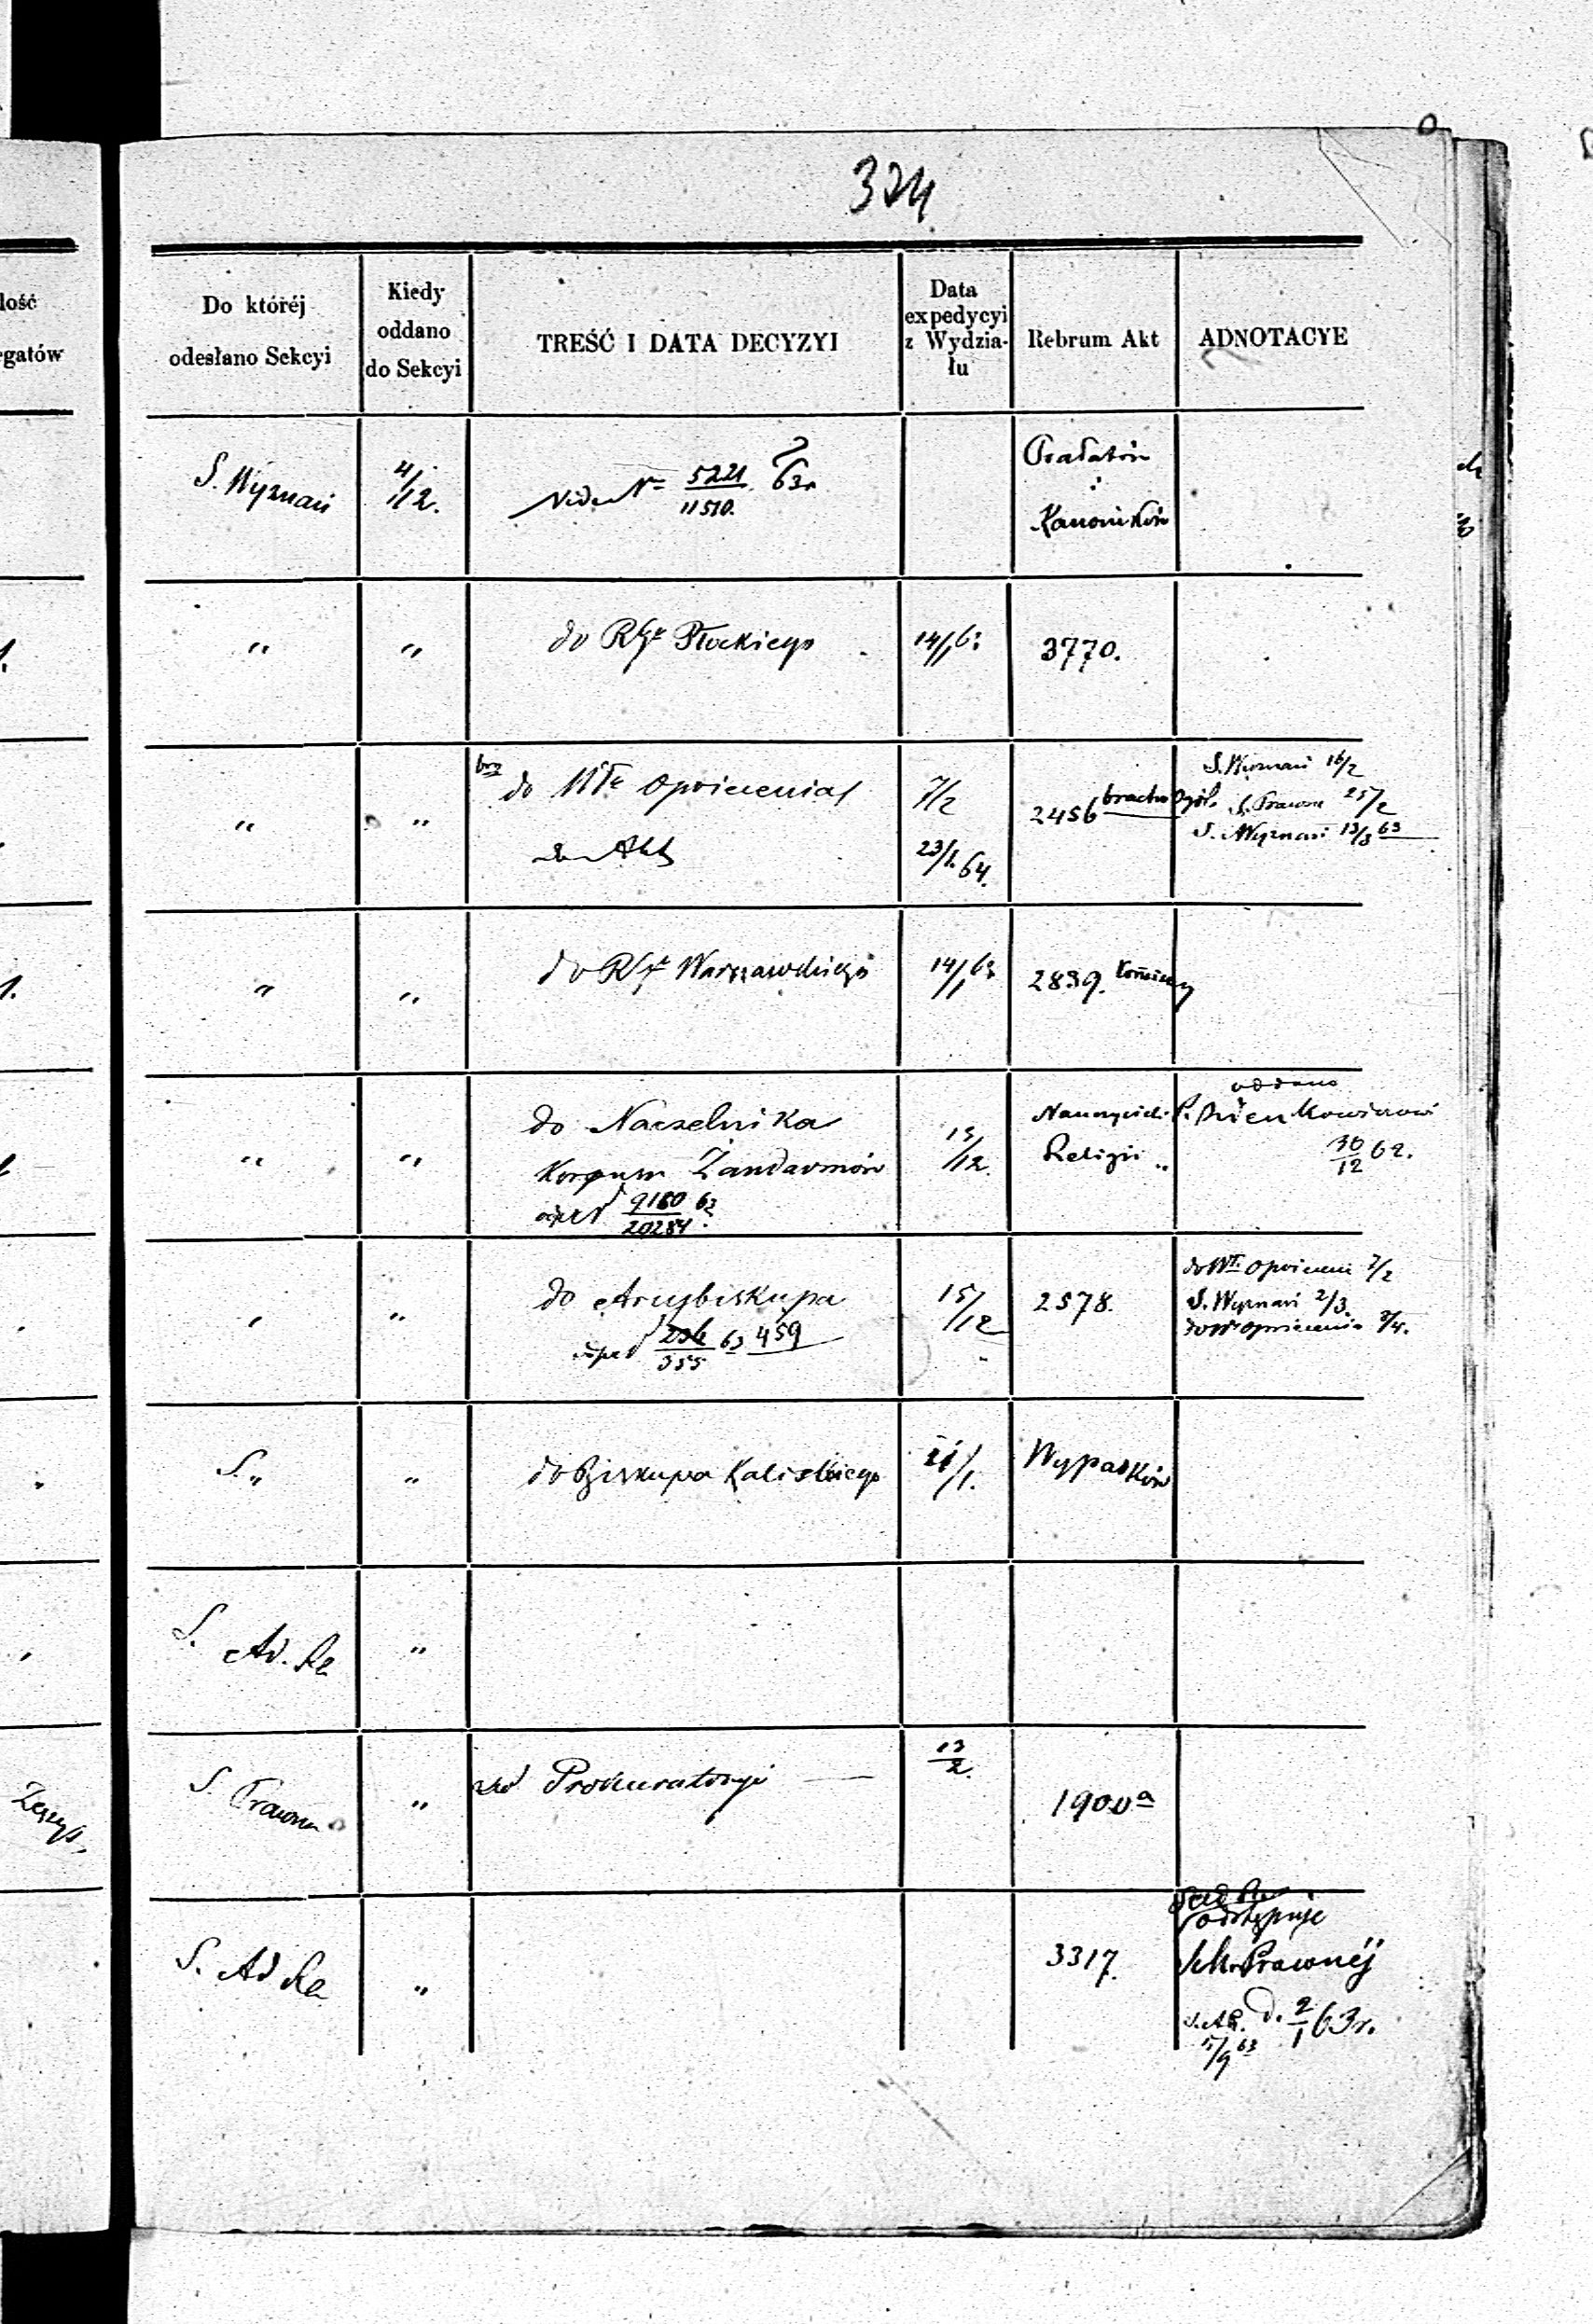 324
lość
egatów
Do któréj
odesłano Sekcyi
Kiedy
oddano
do Sekcyi
TREŚĆ I DATA DECYZYI
Data
expedycyi
z Wydzia-
łu
Rebrum Akt
ADNOTACYE
S. Wyznań
4/12.
Vide No 5221/11510. 63r
Prałatów
i
Kanoników
"
"
do RGr Płockiego
14/1 63
3770.
"
"
do Włe Oświecenia
7/2
23/1. 64.
2456
S. Wyznań 16/2
S. Prawna 25/2
S. Wyznań 13/3 63
"
"
do RGr Warszawskiego
14/1 63
2839.
"
"
do Naczelnika
Korpusu Żandarmów
9180/20284 63
15/12.
Nauczycieli
Religii "
oddano
30/12 62.
"
"
do Arcybiskupa
355 63 459
15/12
2578.
do Wł. Oświecen 7/2
S. Wyznań 2/3.
do Wł Oświecenia 8/4.
S. "
"
do Biskupa Kaliskiego
21/1.
Wypadków
S. Ad. Re
"
S. Prawna
"
od Prokuratoryi
13/2.
1900a
Zeszyt
S. Ad Re
"
3317.
odstępuje
Sek. Prawnéj
d. 2/1 63r.
S. AR.
5/9 63